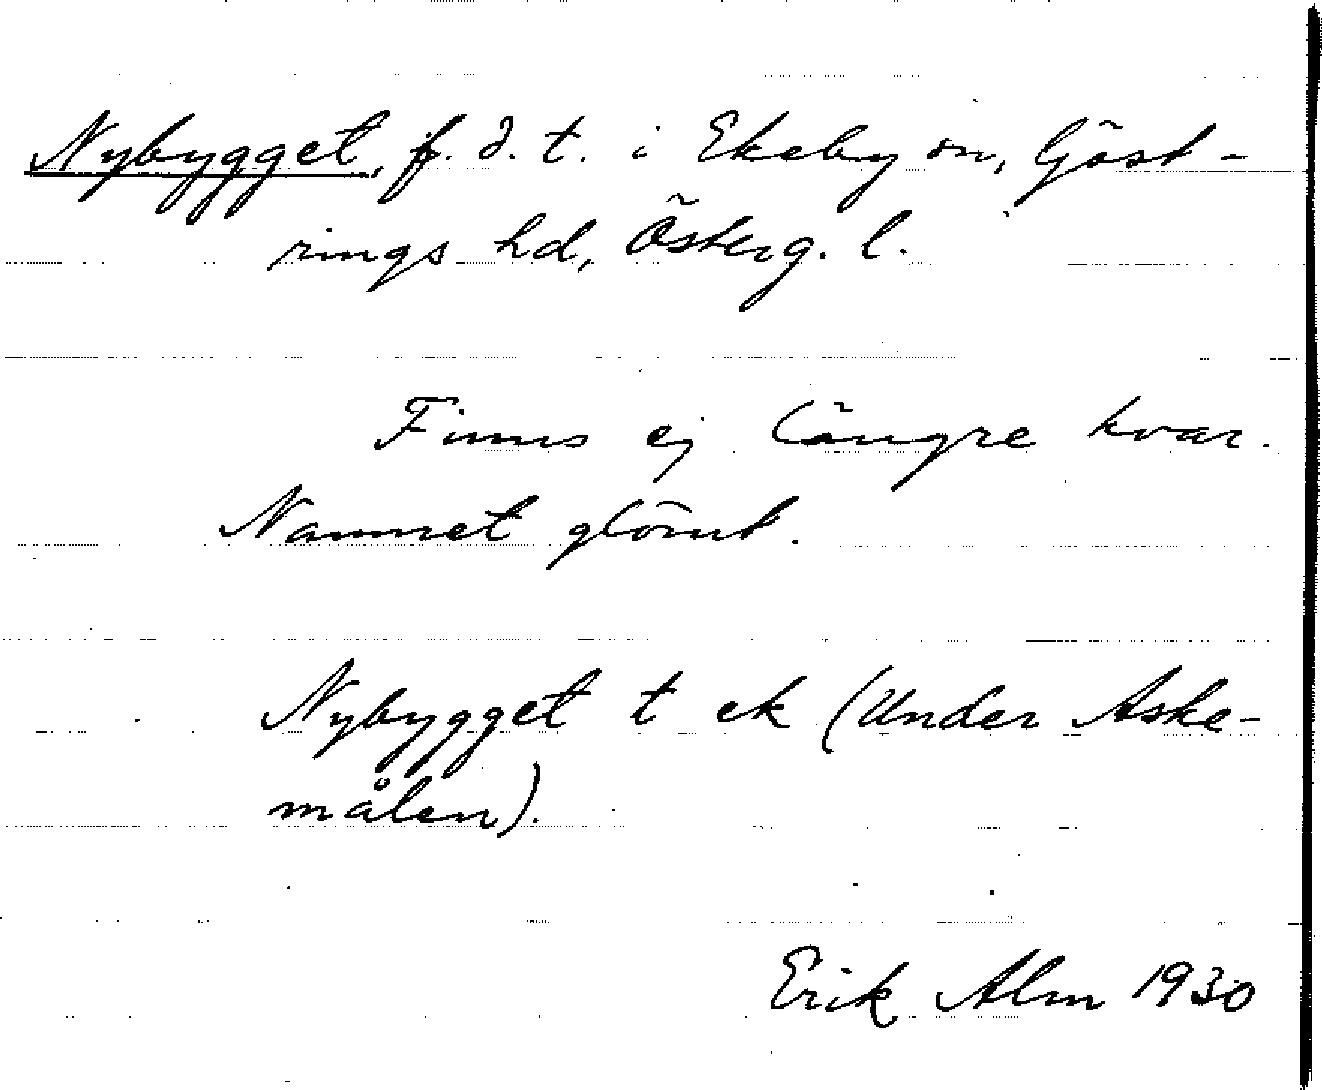 Nybygget, f. d. t. i Ekeby sn, Göst-
rings hd, Österg. l.
Finns ej längre kvar.
Namnet glömt.
Nybygget t ek (Under Aske-
målen).
Erik Alm 1930